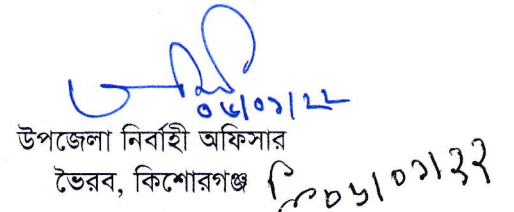 ০৬/০১/২২
উপজেলা নির্বাহী অফিসার
ভৈরব, কিশোরগঞ্জ
০৬/০১/২২